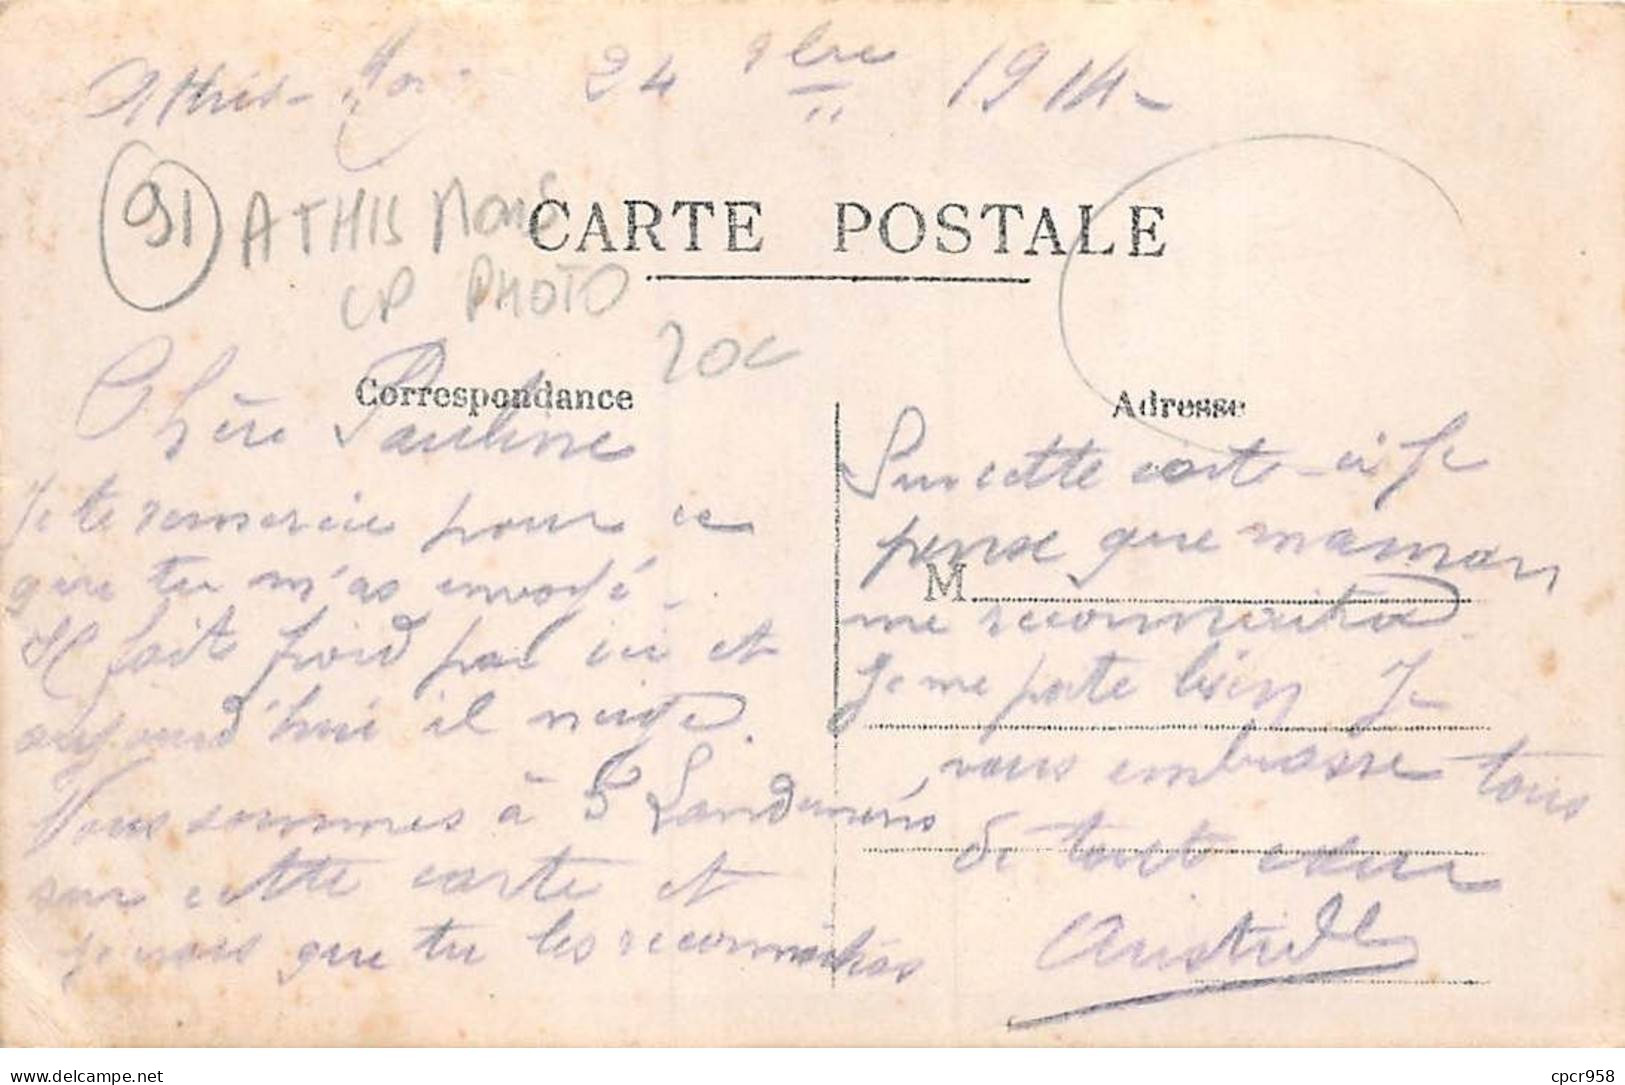 Athis-Mons 24 9bre 1914
91 ATHIS Mons
CARTE POSTALE
CP PHOTO
20€
Correspondance
Adresse
Chère Pauline
Je te remercie pour ce
que tu m'as envoyé.
Il fait froid par ici et
aujourd'hui il neige.
Nous sommes à 5
sur cette carte et
je vois que tu les reconnaitras
Sur cette carte-ci Je
pense que maman
M
me reconnaitra
Je me porte bien Je
vous embrasse tous
de tout cœur
cpcr958